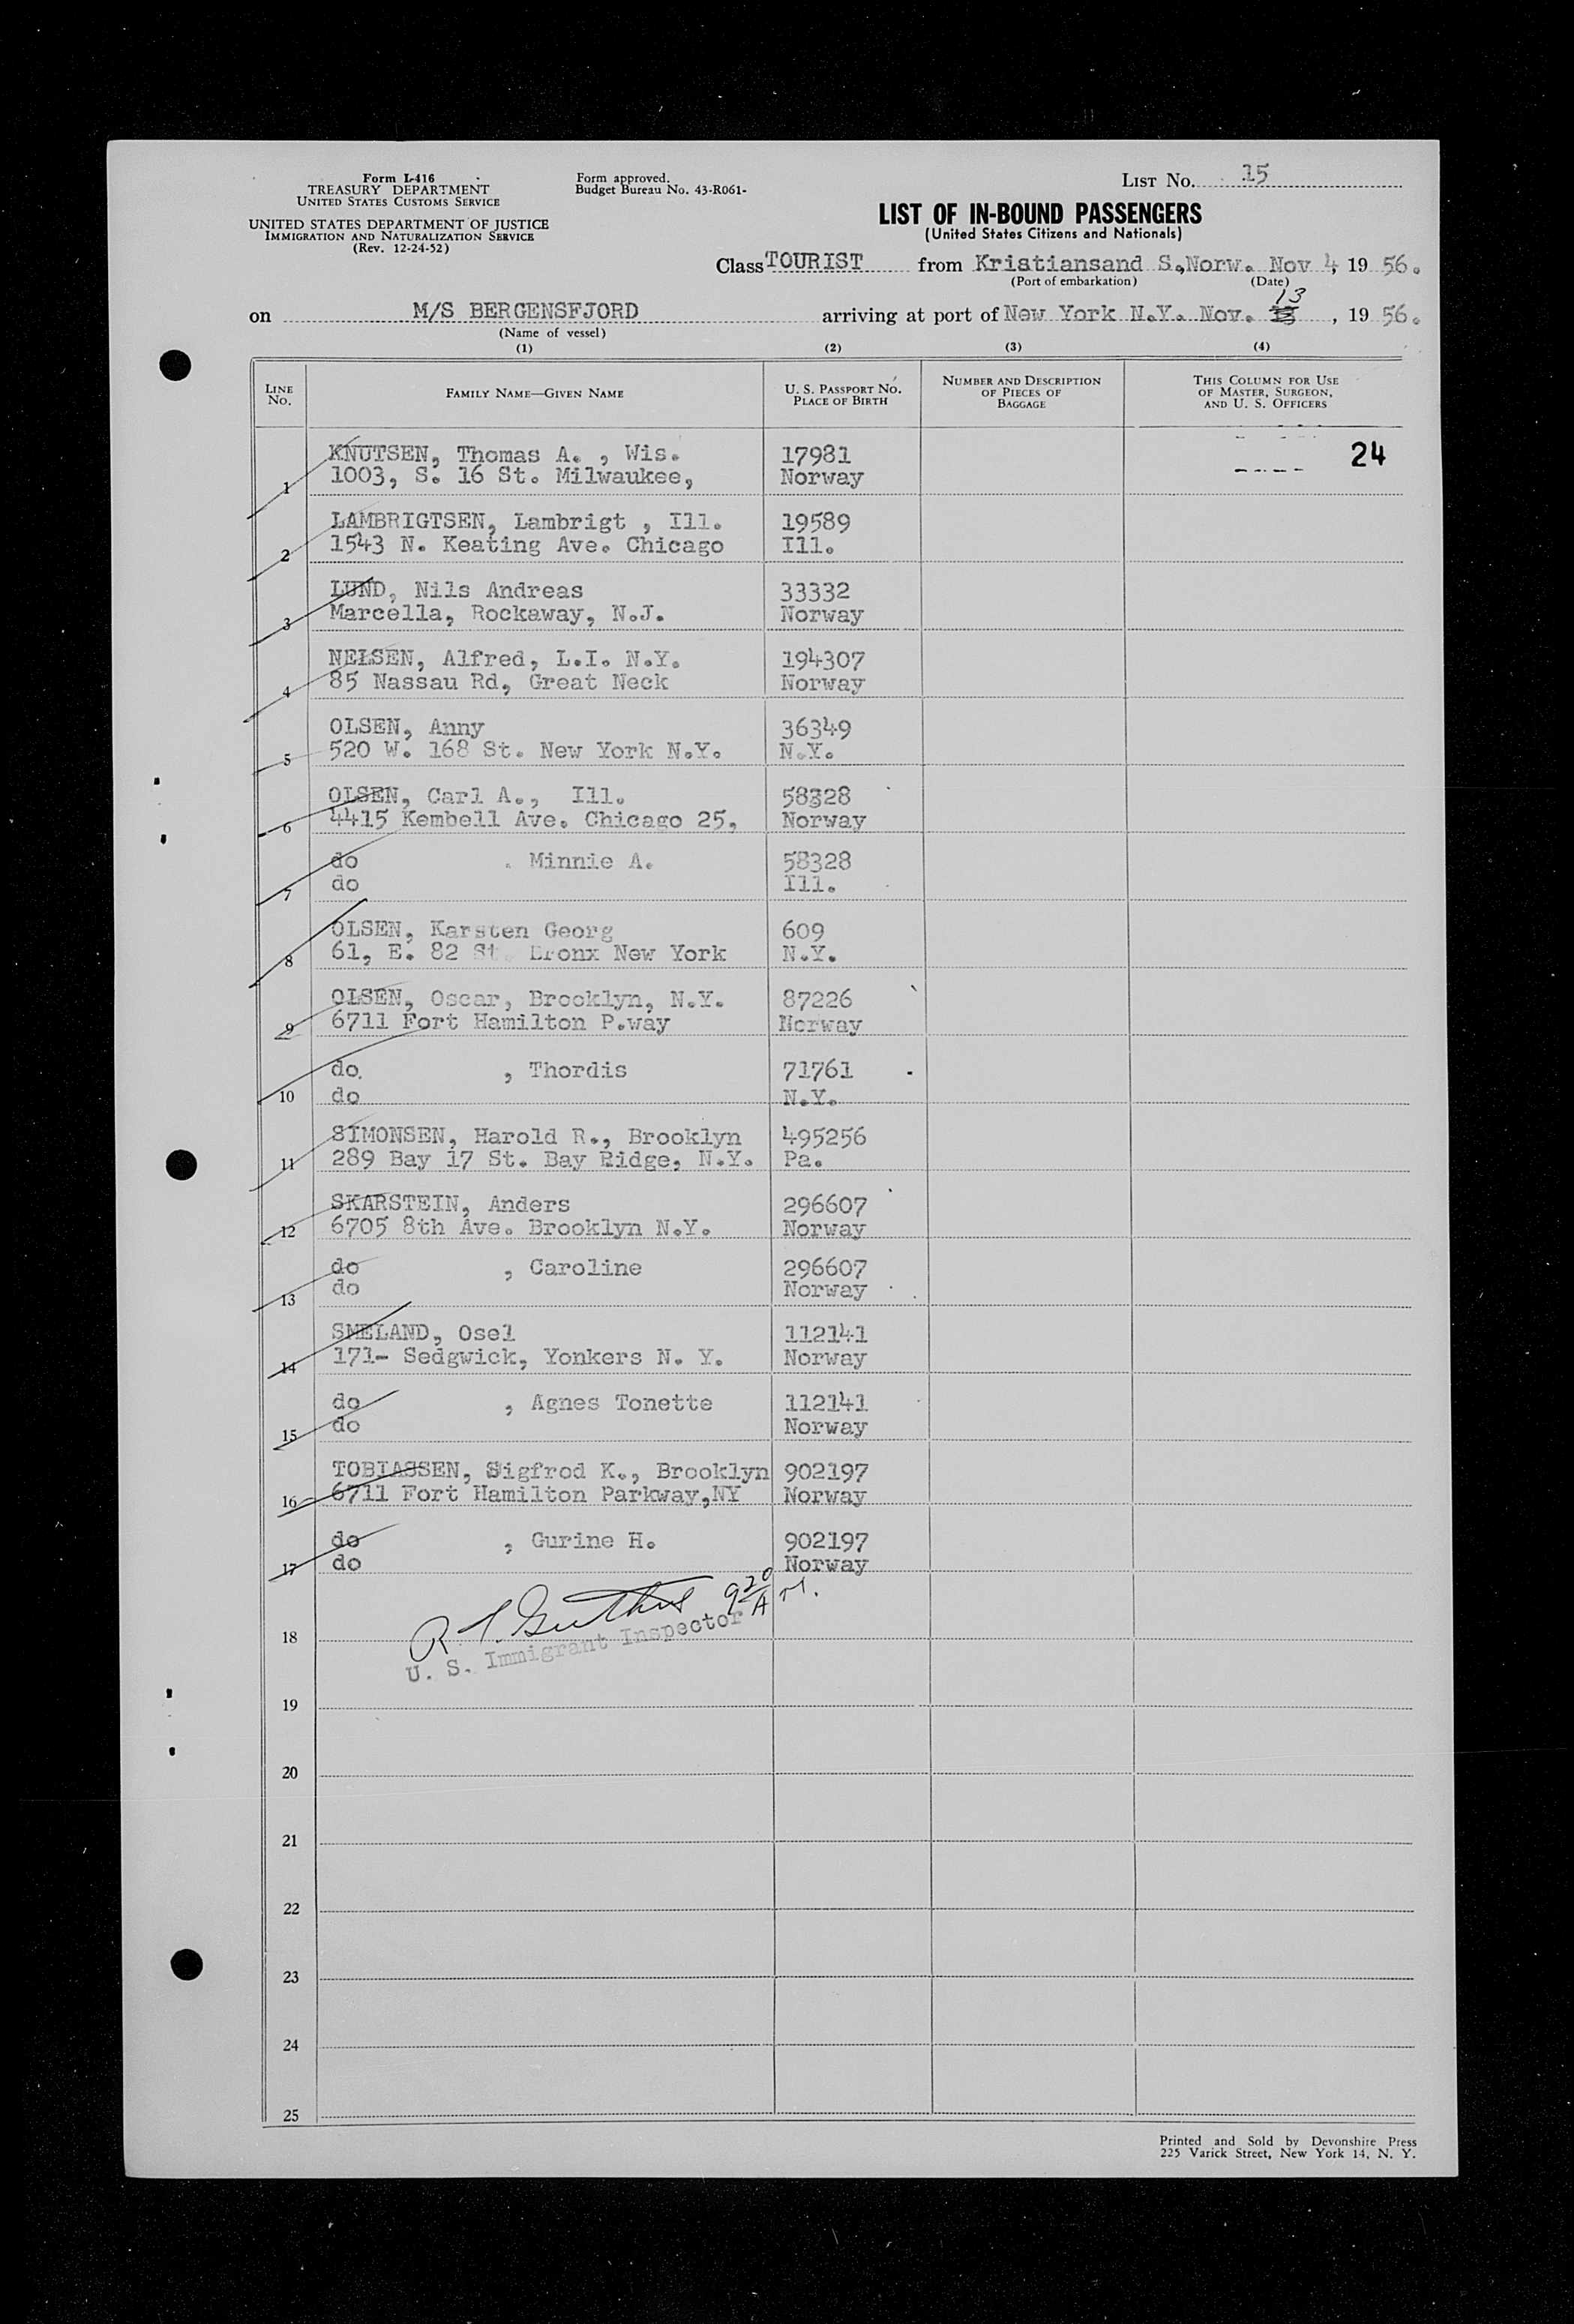 Form I-416
TREASURY DEPARTMENT
UNITED STATES CUSTOMS SERVICE
UNITED STATES DEPARTMENT OF JUSTICE
IMMIGRATION AND NATURALIZATION SERVICE
(Rev. 12-24-52)
Form approved.
Budget Bureau No. 43-R061-
LIST NO. 15
LIST OF IN-BOUND PASSENGERS
(United States Citizens and Nationals)
Class TOURIST from Kristiansand S.,Norw. Nov 4, 19 56.
(Port of embarkation) (Date)
13
on M/S BERGENSFJORD arriving at port of New York N.Y. Nov. , 19 56.
(Name of vessel)
(1) (2) (3) (4)
LINE NO. FAMILY NAME—GIVEN NAME U. S. PASSPORT NO. PLACE OF BIRTH NUMBER AND DESCRIPTION OF PIECES OF BAGGAGE THIS COLUMN FOR USE OF MASTER, SURGEON, AND U. S. OFFICERS
KNUTSEN, Thomas A. , Wis. 17981 24
1 1003, S. 16 St. Milwaukee, Norway
LAMBRIGTSEN, Lambrigt , Ill. 19589
2 1543 N. Keating Ave. Chicago Ill.
LUND, Nils Andreas 33332
3 Marcella, Rockaway, N.J. Norway
NELSEN, Alfred, L.I. N.Y. 194307
4 85 Nassau Rd, Great Neck Norway
OLSEN, Anny 36349
5 520 W. 168 St. New York N.Y. N.Y.
OLSEN, Carl A., Ill. 58328
6 4415 Kembell Ave. Chicago 25, Norway
do . Minnie A. 58328
7 do Ill.
OLSEN, Karsten Georg 609
8 61, E. 82 St. Bronx New York N.Y.
OLSEN, Oscar, Brooklyn, N.Y. 87226
9 6711 Fort Hamilton P.way Norway
do. , Thordis 71761
10 do N.Y.
SIMONSEN, Harold R., Brooklyn 495256
11 289 Bay 17 St. Bay Ridge, N.Y. Pa.
SKARSTEIN, Anders 296607
12 6705 8th Ave. Brooklyn N.Y. Norway
do , Caroline 296607
13 do Norway
SMELAND, Osel 112141
14 171- Sedgwick, Yonkers N. Y. Norway
do , Agnes Tonette 112141
15 do Norway
TOBIASSEN, Sigfrod K., Brooklyn 902197
16 6711 Fort Hamilton Parkway,NY Norway
do , Gurine H. 902197
17 do Norway
9 20 A M.
18 U. S. Immigrant Inspector
19
20
21
22
23
24
25
Printed and Sold by Devonshire Press
225 Varick Street, New York 14, N. Y.